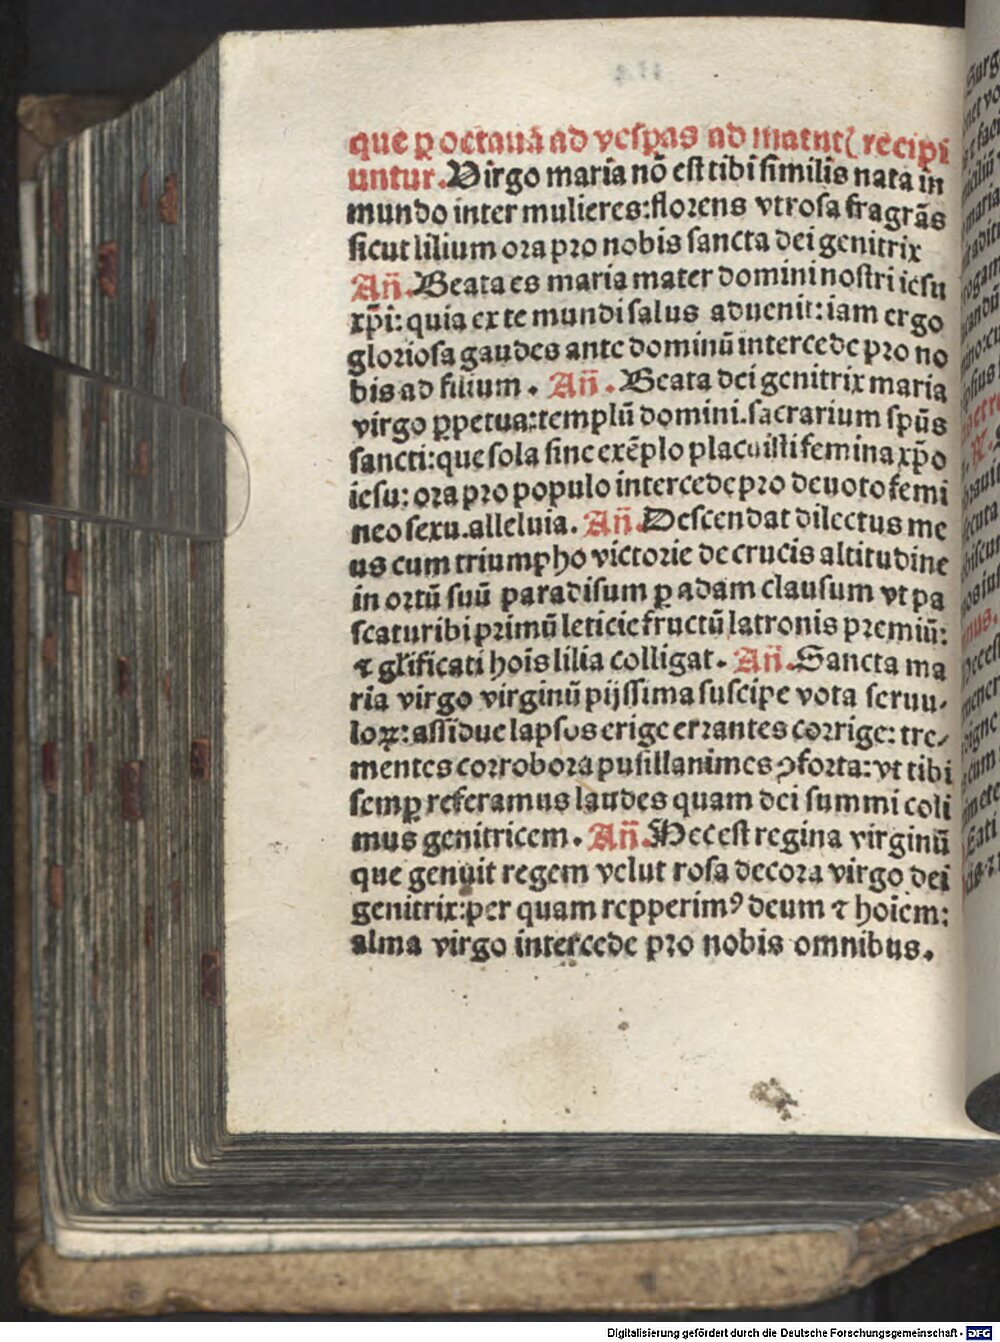 que ꝑ octauā ad vesꝑas ad matut⁊ recipi
untur. Virgo maria nō est tibi similis nata in
mundo inter mulieres: florens vt rosa fragrãs
sicut lilium ora pro nobis sancta dei genitrix
Añ. Beata es maria mater domini nostri iesu
xp̄i: quia ex te mundi salus aduenit: iam ergo
gloriosa gaudes ante dominū intercede pro no
bis ad filium. Añ. Beata dei genitrix maria
virgo ꝑpetua: templū domini. sacrarium sp̄us
sancti: que sola sine exēplo placuisti femina xp̄o
iesu: ora pro populo intercede pro deuoto femi
neo sexu. alleluia. Añ. Descendat dilectus me
us cum triumpho victorie de crucis altitudine
in ortū suū paradisum ꝑ adam clausum vt pa
scatur ibi primū leticie fructū latronis premiū:
⁊ gl̄ificati hoīs lilia colligat. Añ. Sancta ma
ria virgo virginū pijssima suscipe vota seruu-
loꝝ: assidue lapsos erige errantes corrige: tre-
mentes corrobora pusillanimes ꝯforta: vt tibi
semꝑ referamus laudes quam dei summi coli
mus genitricem. Añ. Hec est regina virginū
que genuit regem velut rosa decora virgo dei
genitrix: per quam repperimꝰ deum ⁊ hoīem:
alma virgo intercede pro nobis omnibus.
Digitalisierung gefördert durch die Deutsche Forschungsgemeinschaft - DFG